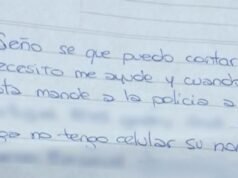 Seño se que puedo contar
ecesito me ayude y cuando
ta mande a la policia a
no tengo celular su